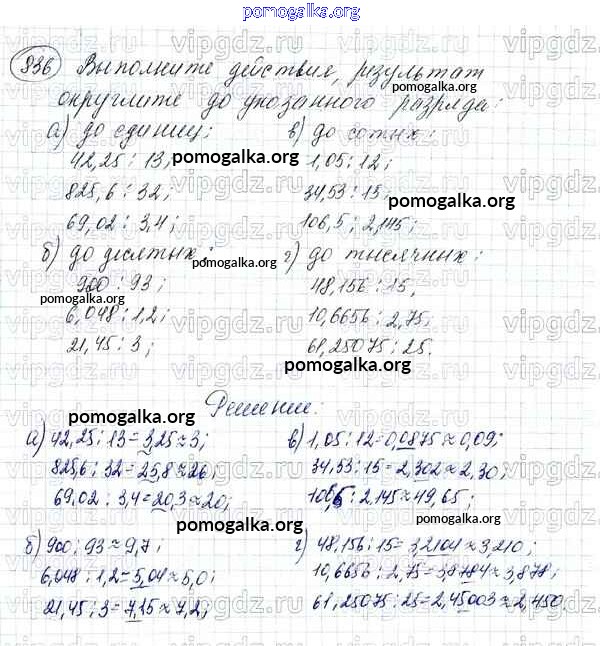 pomogalka.org
836 Выполните действия, результат
округлите до указанного разряда:
а) до единиц; в) до сотых:
42,25 : 13, 1,05 : 12;
825,6 : 32; 34,53 : 15
69,02 : 3,4; 106,5 : 2,145;
б) до десятых: г) до тысячных:
900 : 93; 48,156 : 15,
6,048 : 1,2; 10,6656 : 2,75,
21,45 : 3; 61,25075 : 25.
Решение:
а) 42,25 : 13 = 3,25 ≈ 3; в) 1,05 : 12 = 0,0875 ≈ 0,09;
825,6 : 32 = 25,8 ≈ 26; 34,53 : 15 = 2,302 ≈ 2,30;
69,02 : 3,4 = 20,3 ≈ 20; 106,5 : 2,145 ≈ 49,65;
б) 900 : 93 ≈ 9,7; г) 48,156 : 15 = 3,2104 ≈ 3,210;
6,048 : 1,2 = 5,04 ≈ 5,0; 10,6656 : 2,75 = 3,8784 ≈ 3,878;
21,45 : 3 = 7,15 ≈ 7,2; 61,25075 : 25 = 2,45003 ≈ 2,450.